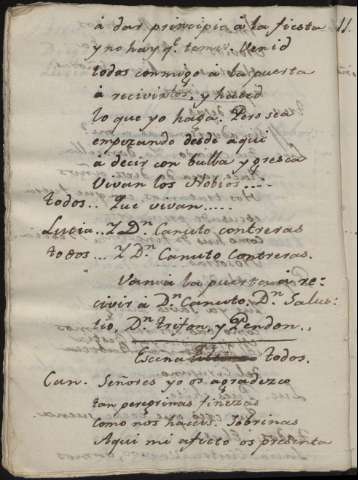 á dar principio á la fiesta 11.
y no hay q.e temer. Venid
todos conmigo á la puerta
á recivirlos, y haced
lo que yo haga. Pero sea
empezando desde aqui
á decir con bulla y gresca
Vivan los Nobios....
todos.. Que vivan....
Lucia.. Y Dn Canuto contreras
todos... Y Dn Canuto Contreras.
Van a la puerta á re-
civir á Dn Canuto, Dn Salus-
tio, Dn trifon, y Pendon..
Escena todos.
Can. Señores yo os agradezco
tan peregrinas finezas
como nos haceis. Sobrinas
Aqui mi afecto os presenta